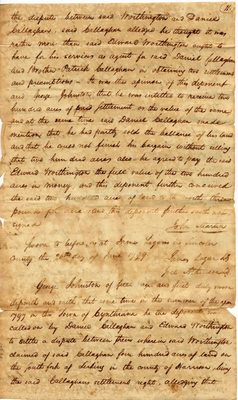 11.
the dispute between said Worthington and Daniel
Callaghan, said Callaghan alledged he thought it was
rather more than said Edward Worthington ought to
have for his services as agent for said Daniel Callaghan
and Brother Patrick Callaghan in obtaining two settlements
and preemptions. It was the opinion of this deponent
and George Johnston, that he was intitled to receive two
hundred acres of good settlement or the value of the same
and at the same time said Daniel Callaghan made
mention that he had partly sold the ballance of his land
and that he could not fulfil his bargain without selling
that two hundred acres also he agreed to pay the said
Edward Worthington the full value of the two hundred
acres in money and this deponent further conceived
the said two hundred acres of land to be worth three
pounds per acre and this deponent further saith not
Signed
Sworn to before us at
County the 20th day of June
George Johnston of full age and first duly sworn
deposeth and saith that some time in the summer of the year
1797 in the Town of Cynthiana he the deponent was
called on by Daniel Callaghan and Edward Worthington
to settle a dispute between them wherein said Worthington
claimed of said Callaghan four hundred acres of land on
the South fork of Licking in the county of Harrison, being
the said Callaghans settlement right, alledging that